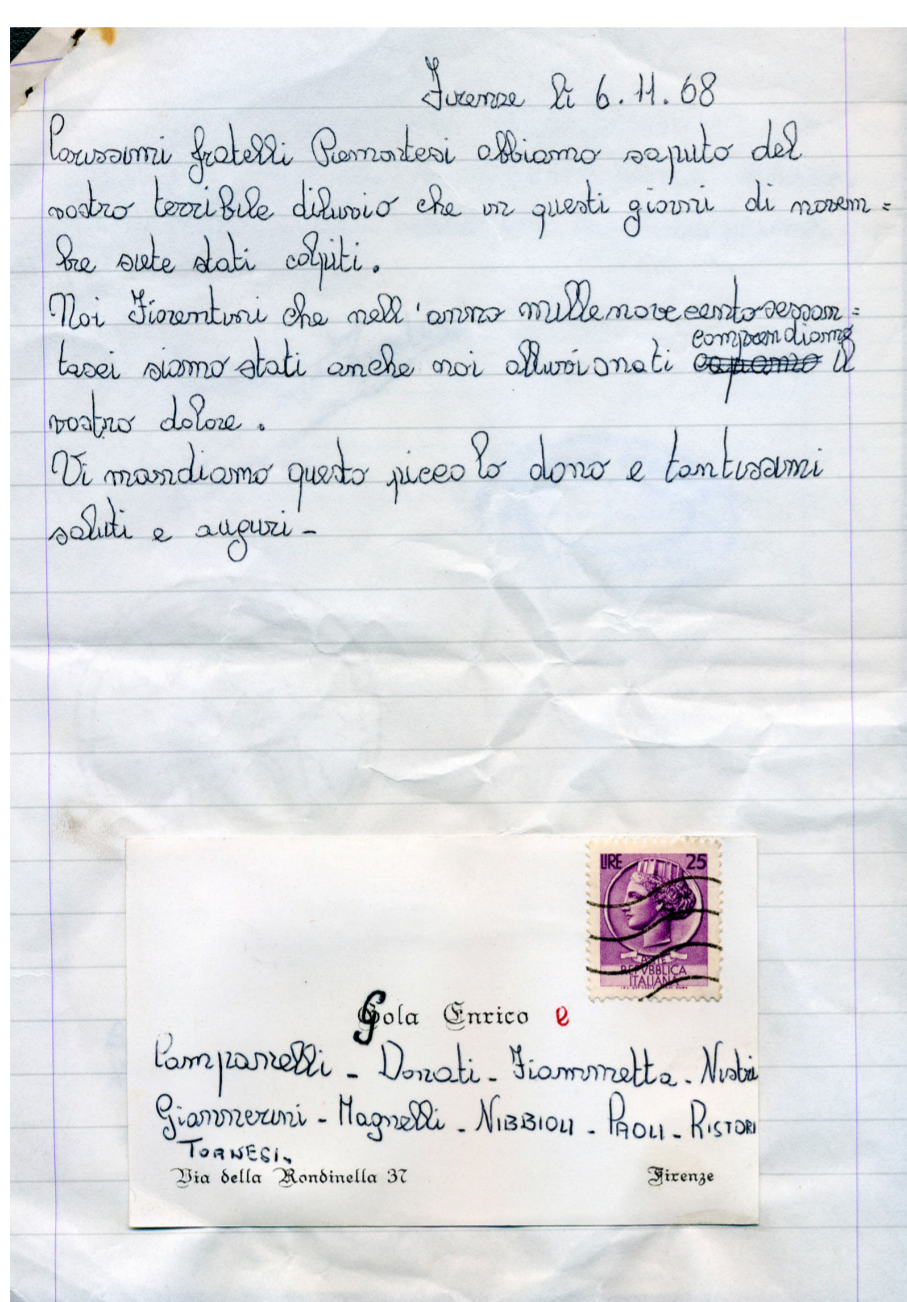 Firenze li 6.11.68
Carissimi fratelli Piemontesi abbiamo saputo del
vostro terribile diluvio che in questi giorni di novem=
bre siete stati colpiti.
Noi Fiorentini che nell'anno millenovecentosessan=
tasei siamo stati anche noi alluvionati capiamo comprendiamo il
vostro dolore.
Vi mandiamo questo piccolo dono e tantissimi
saluti e auguri -
LIRE 25
POSTE
REPVBBLICA
ITALIANA
Gola Enrico e
Campanelli - Donati - Fiammetta - Nistri
Giannerini - Magnelli - NIBBIOLI - PAOLI - RISTORI
TORNESI.
Via della Rondinella 37 Firenze